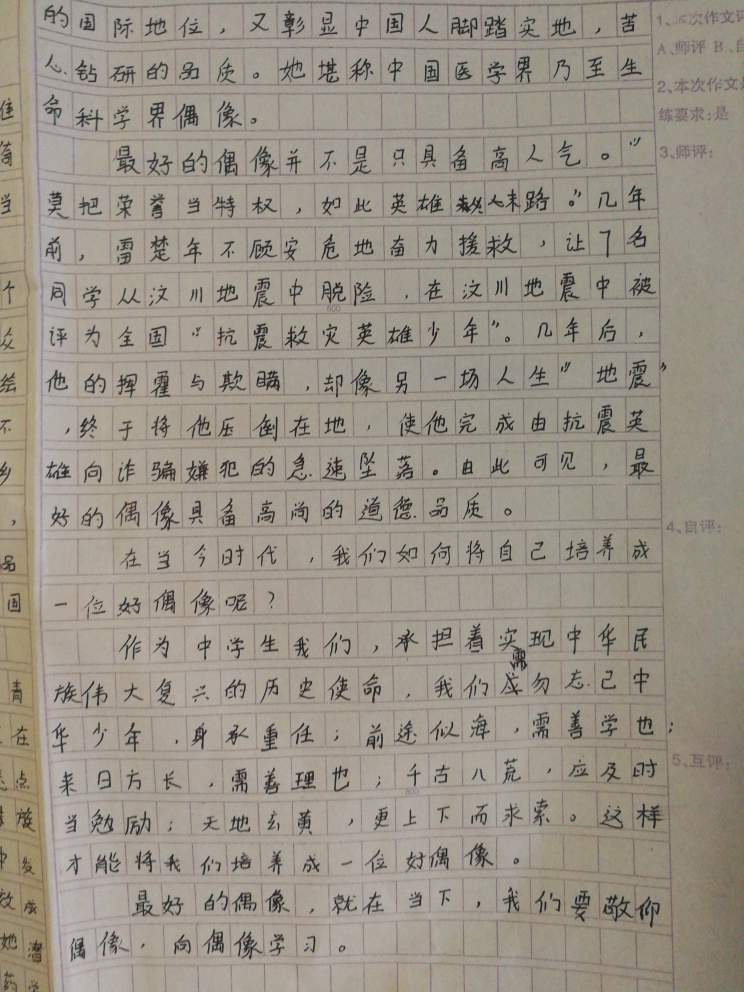 的国际地位，又彰显中国人脚踏实地，苦
心钻研的品质。她堪称中国医学界乃至生
命科学界偶像。
最好的偶像并不是只具备高人气。“
莫把荣誉当特权，如此英雄末路。”几年
前，雷楚年不顾安危地奋力援救，让7名
同学从汶川地震中脱险，在汶川地震中被
评为全国“抗震救灾英雄少年”。几年后，
他的挥霍与欺瞒，却像另一场人生“地震”
，终于将他压倒在地，使他完成由抗震英
雄向诈骗嫌犯的急速坠落。由此可见，最
好的偶像具备高尚的道德品质。
在当今时代，我们如何将自己培养成
一位好偶像呢？
作为中学生我们，承担着实现中华民
族伟大复兴的历史使命，我们需勿忘己中
华少年，身承重任；前途似海，需善学也；
来日方长，需善理也；千古八荒，应及时
当勉励；天地玄黄，更上下而求索。这样
才能将我们培养成一位好偶像。
最好的偶像，就在当下，我们要敬仰
偶像，向偶像学习。
1、本次作文评
A、师评 B、自
2、本次作文是
练要求:是
3、师评:
4、自评:
5、互评:
600
800
住
当
个
众
绘
不
乡
，
品
国
青
在
点
族
中发
效成
她渣
药学